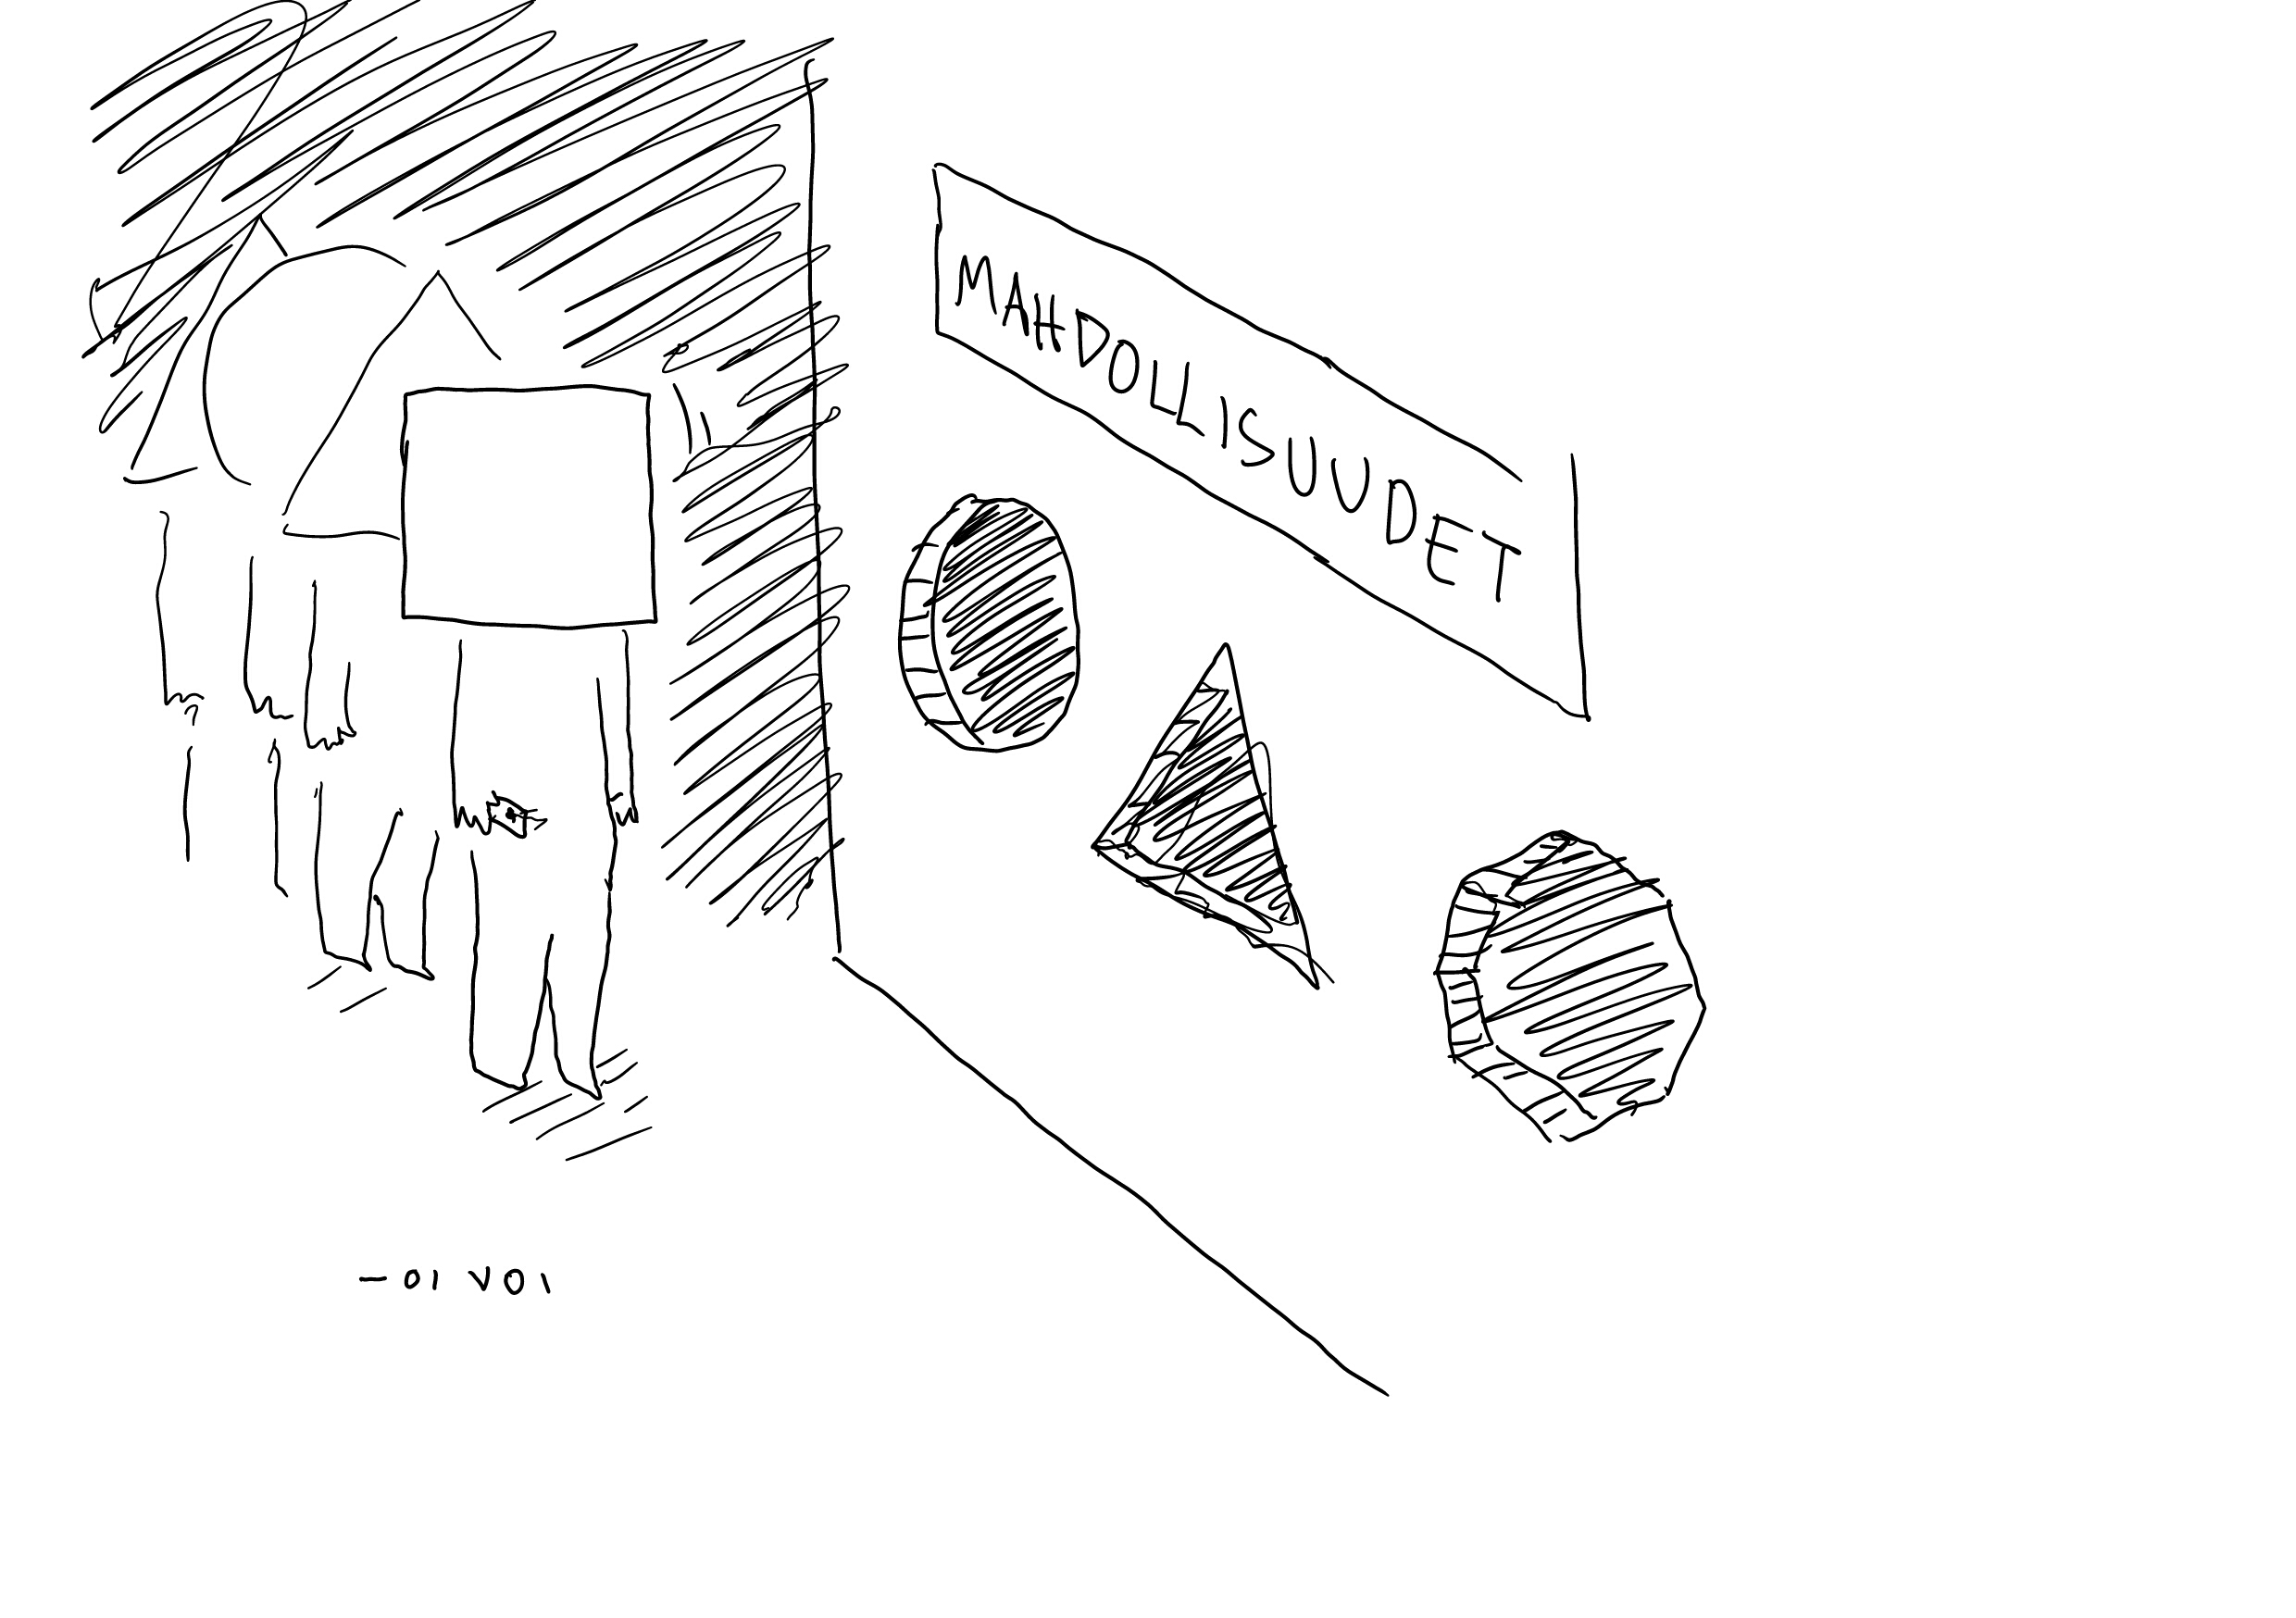 MAHDOLLISUUDET
- OI VOI